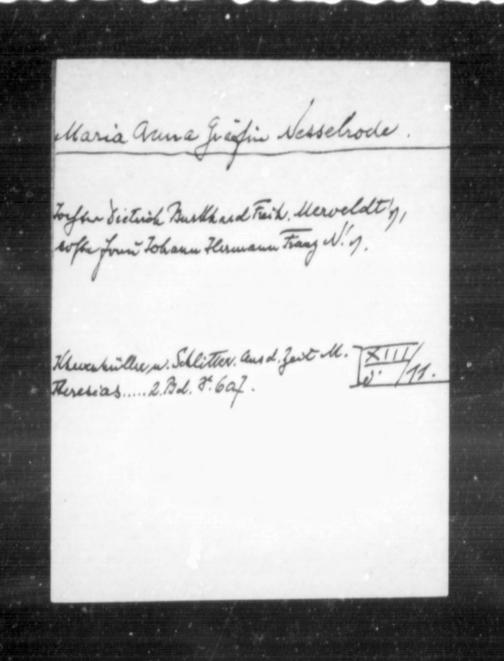 Maria Anna Gräfin Nesselrode.
Tochter Dietrich Burkhard Freih. Merveldt's,
erste Frau Johann Hermann Franz N.'s.
Khevenhüller u. Schlitter. Aus d. Zeit M.
Theresias..... 2. Bd. S. 607.
XIII/11.